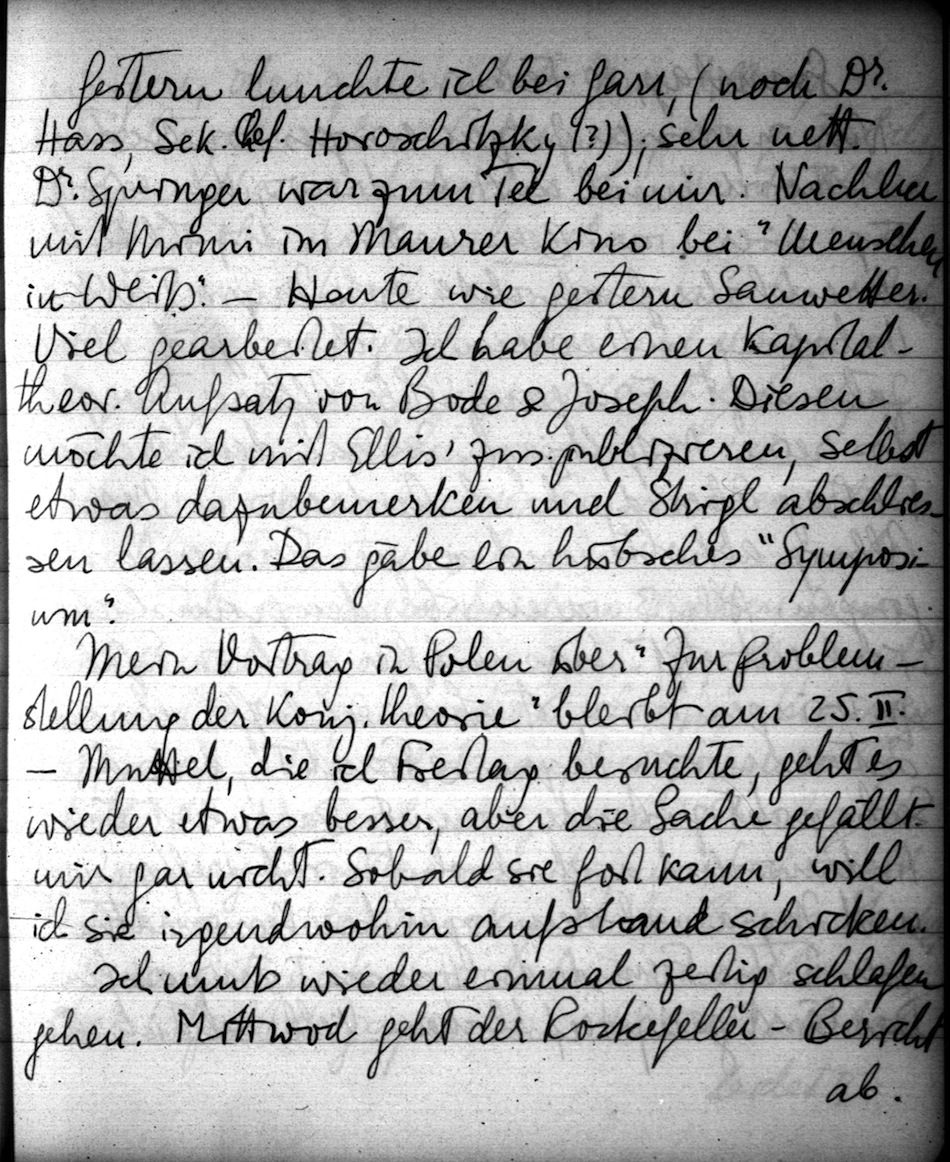 Gestern lunchte ich bei Garr, (noch Dr.
Hass, Sek. Chef. Horoschitzky (?)); sehr nett.
Dr. Springer war zum Tee bei mir. Nachher
mit Mimi im Maurer Kino bei "Menschen
in Weiß". – Heute wie gestern Sauwetter.
Viel gearbeitet. Ich habe einen Kapital-
theor. Aufsatz von Bode & Joseph. Diesen
möchte ich mit Ellis' zus. publizieren, selbst
etwas dazubemerken und Strigl abschlies-
sen lassen. Das gäbe ein hübsches "Symposi-
um".
Mein Vortrag in Polen über "Zur Problem-
stellung der Konj. theorie" bleibt am 25. II.
– Muttel, die ich Freitag besuchte, geht es
wieder etwas besser, aber die Sache gefällt
mir gar nicht. Sobald sie fort kann, will
ich sie irgendwohin aufs Land schicken.
Ich muß wieder einmal zeitig schlafen
gehen. Mittwoch geht der Rockefeller-Bericht
ab.